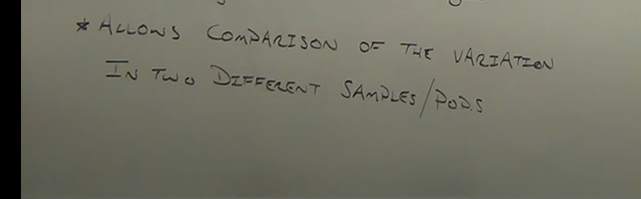 * ALLOWS COMPARISON OF THE VARIATION
IN TWO DIFFERENT SAMPLES/POP.S